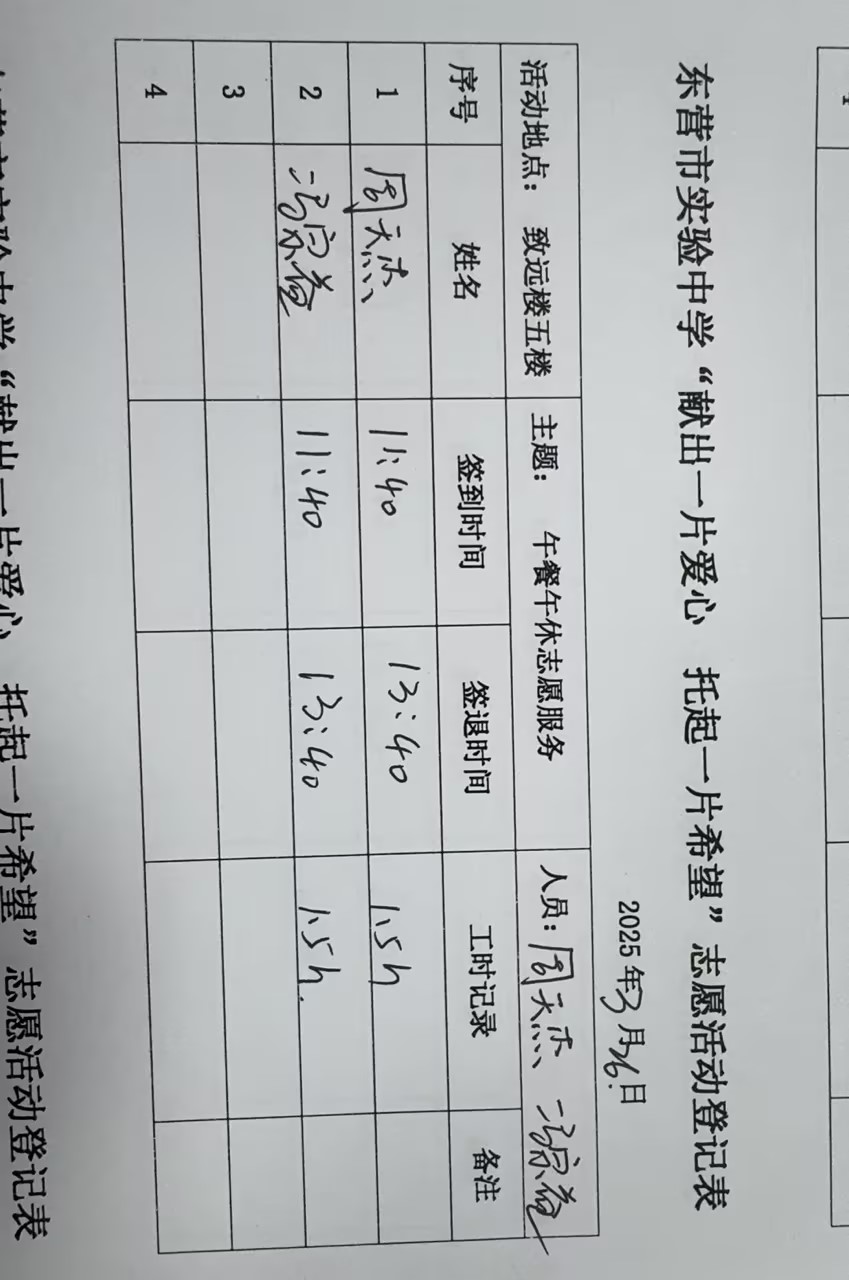 东营市实验中学“献出一片爱心 托起一片希望”志愿活动登记表
2025年3月26日
活动地点: 致远楼五楼 主题: 午餐午休志愿服务 人员: 周天杰 冯宗益
序号 姓名 签到时间 签退时间 工时记录 备注
1 周天杰 11:40 13:40 1.5h
2 冯宗益 11:40 13:40 1.5h.
3
4
实验中学“献出一片爱心 托起一片希望”志愿活动登记表